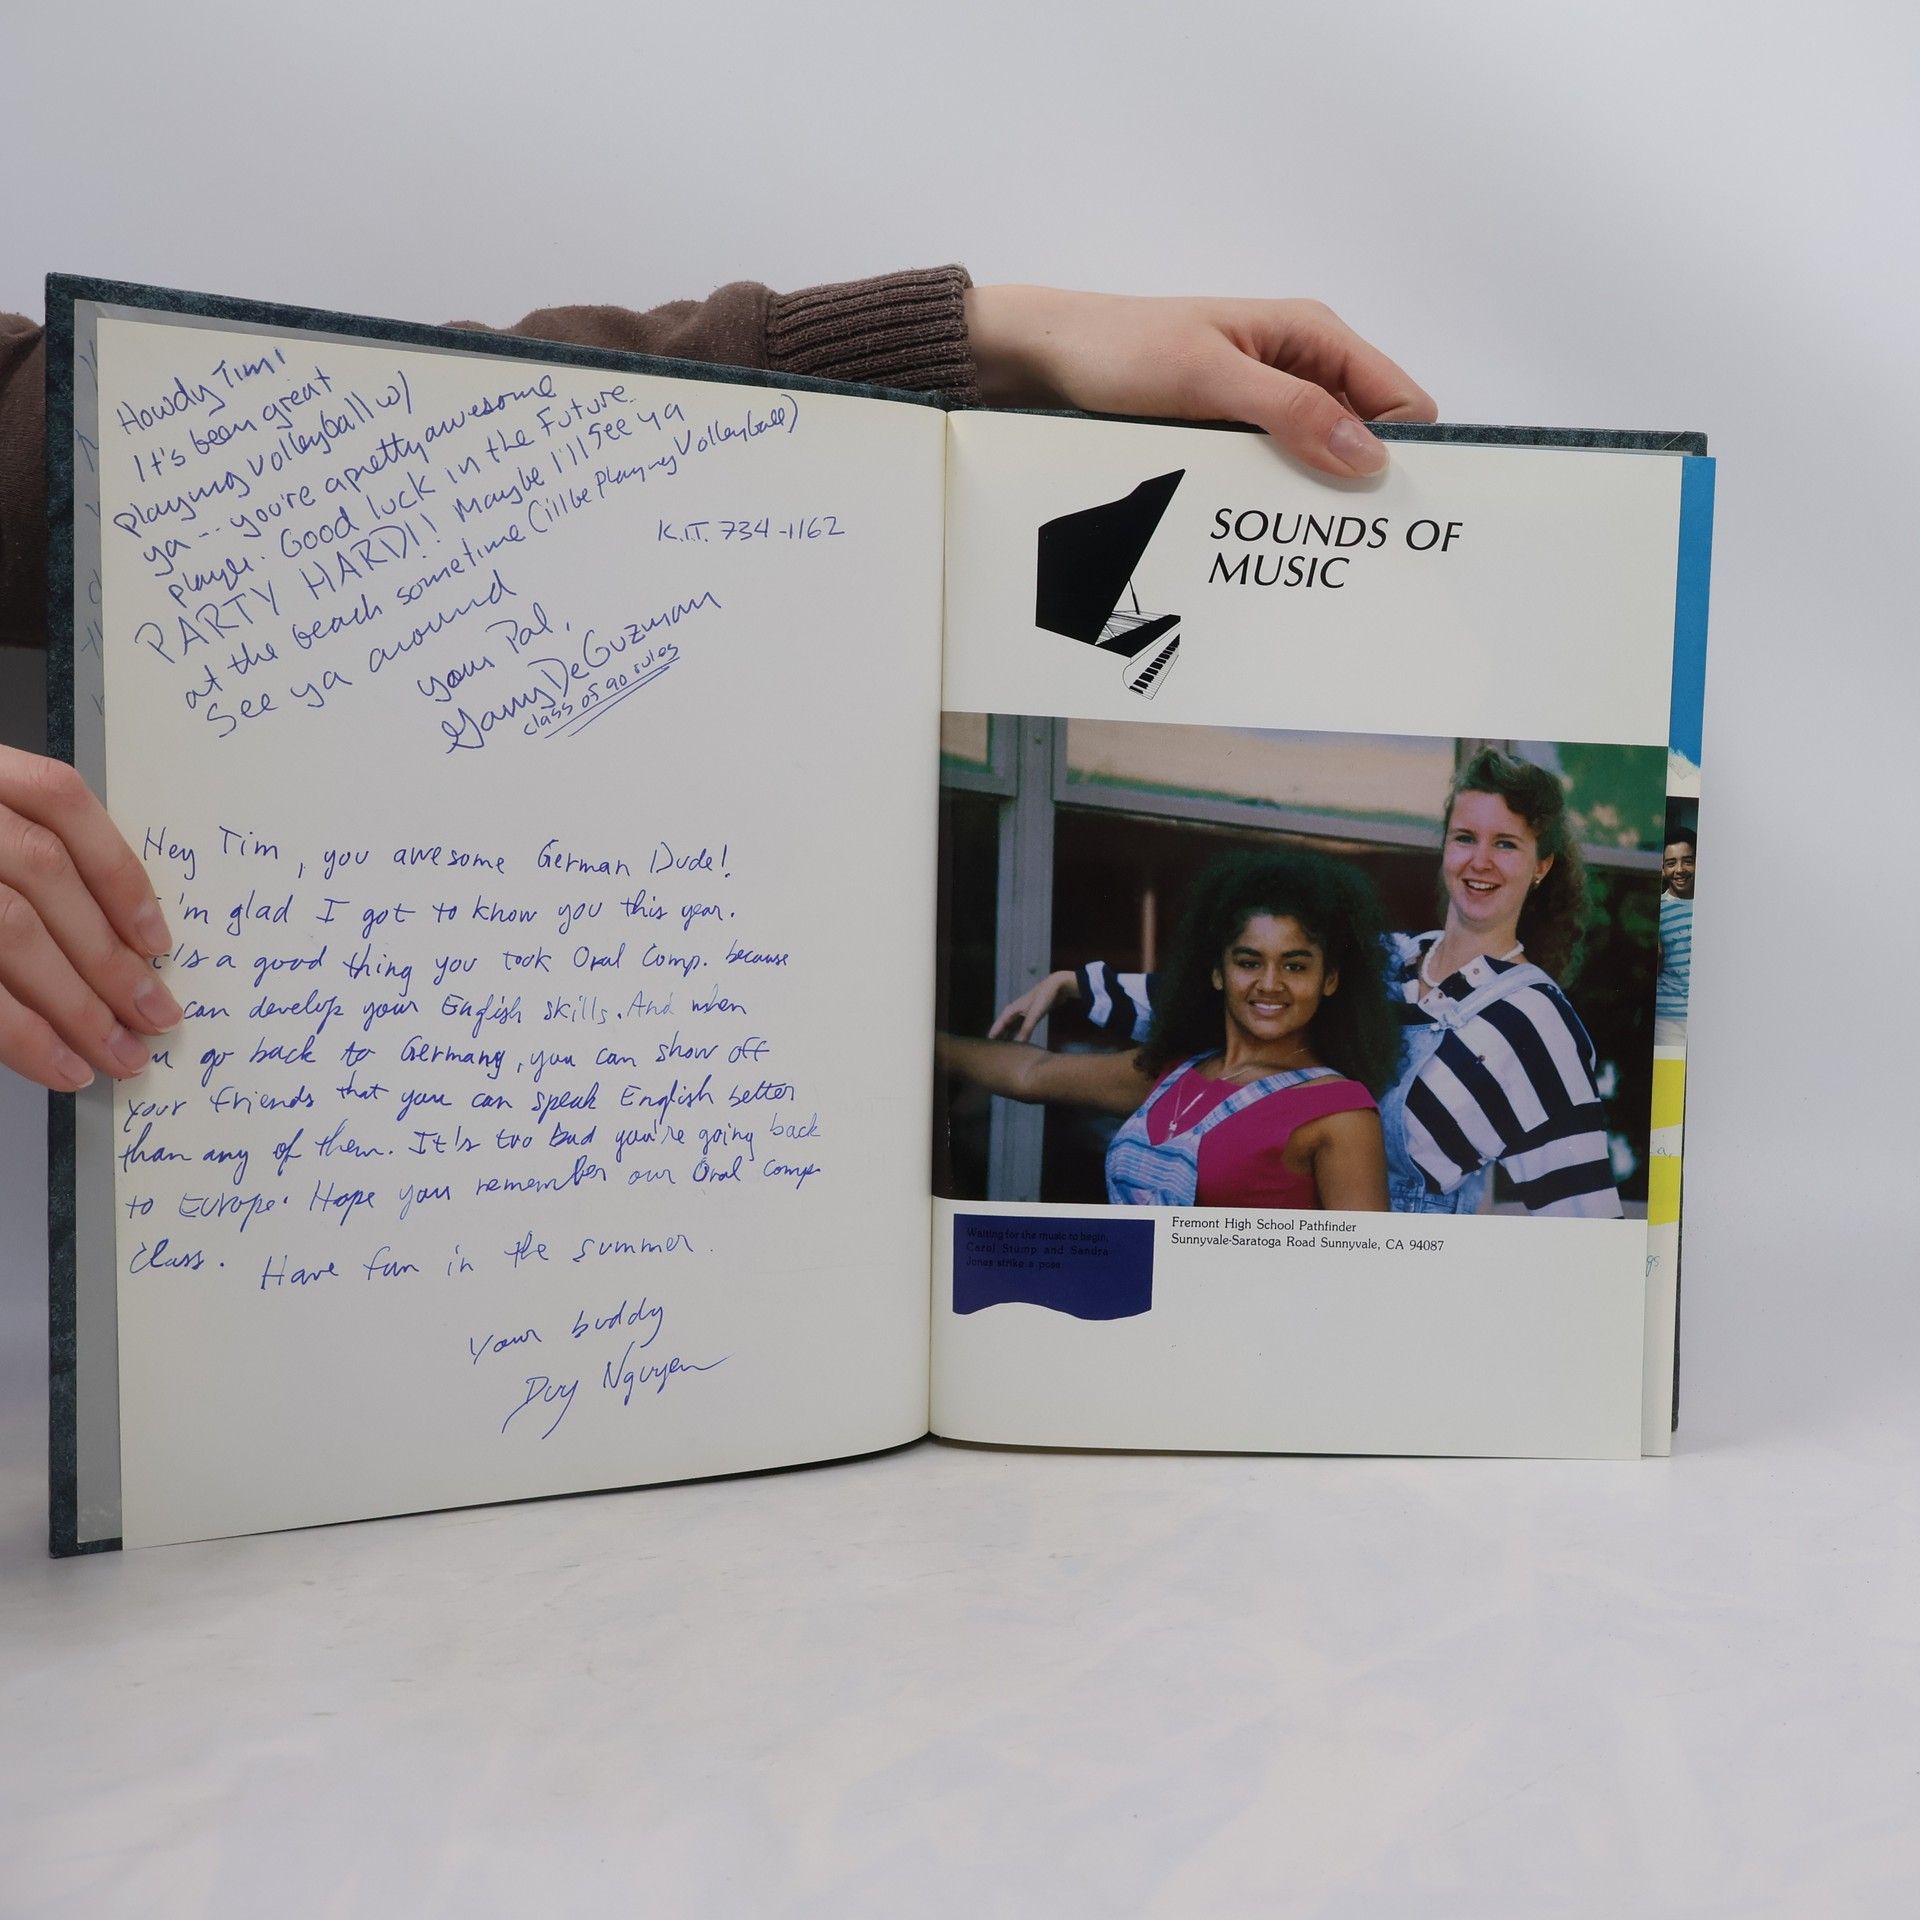 Howdy Tim!
It's been great
playing volleyball w/
ya -- you're a pretty awesome
player. Good luck in the future.
PARTY HARD!! Maybe I'll see ya
at the beach sometime (i'll be playing volleyball)
See ya around
K.I.T. 734-1162
your Pal,
DeGuzman
class of 90 rules
Hey Tim, you awesome German Dude!
'm glad I got to know you this year.
's a good thing you took Oral Comp. because
can develop your English skills. And when
go back to Germany, you can show off
your friends that you can speak English better
than any of them. It's too bad you're going back
to Europe. Hope you remember our Oral Comp
Class. Have fun in the summer.
Your buddy
Duy Nguyen
SOUNDS OF
MUSIC
Waiting for the music to begin,
Carol Stump and Sandra
Jones strike a pose
Fremont High School Pathfinder
Sunnyvale-Saratoga Road Sunnyvale, CA 94087